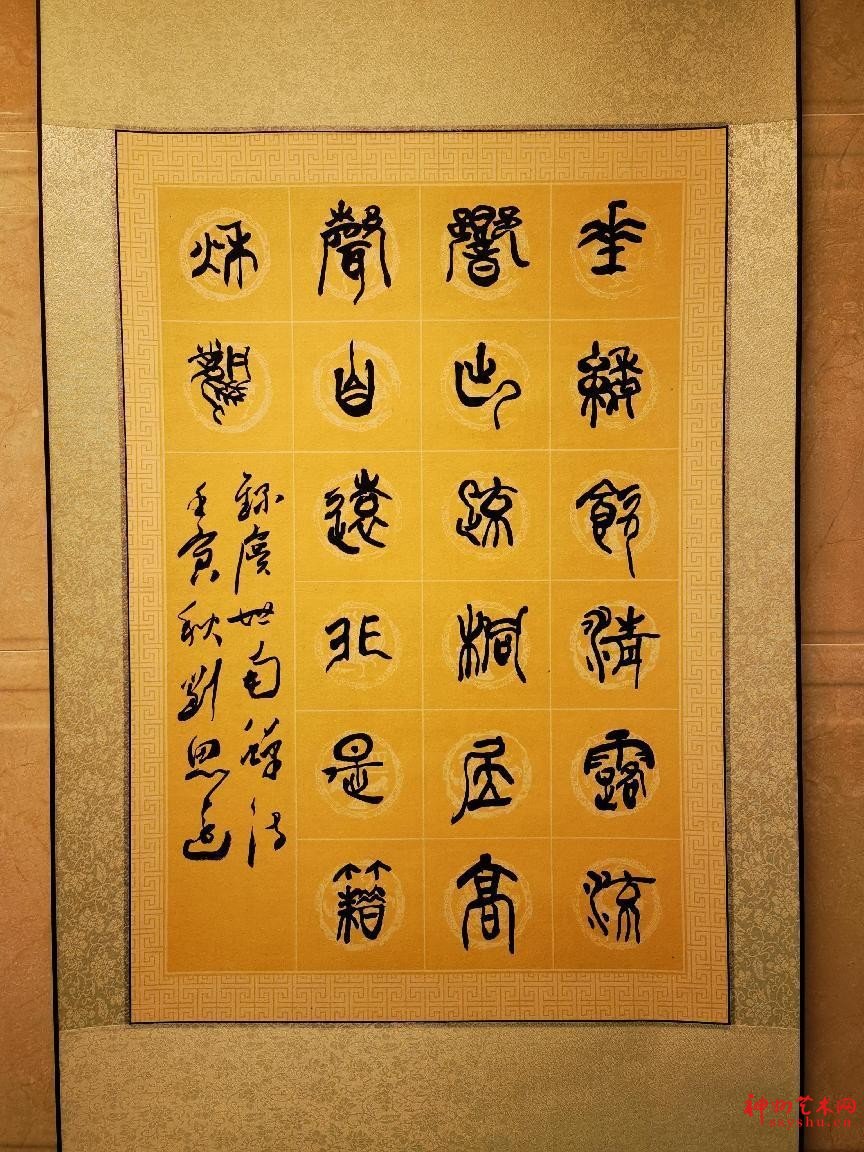 垂緌飲清露流
響出疏桐居高
聲自遠非是籍
秋風
錄虞世南蟬詩
壬寅秋劉思
神州艺术网